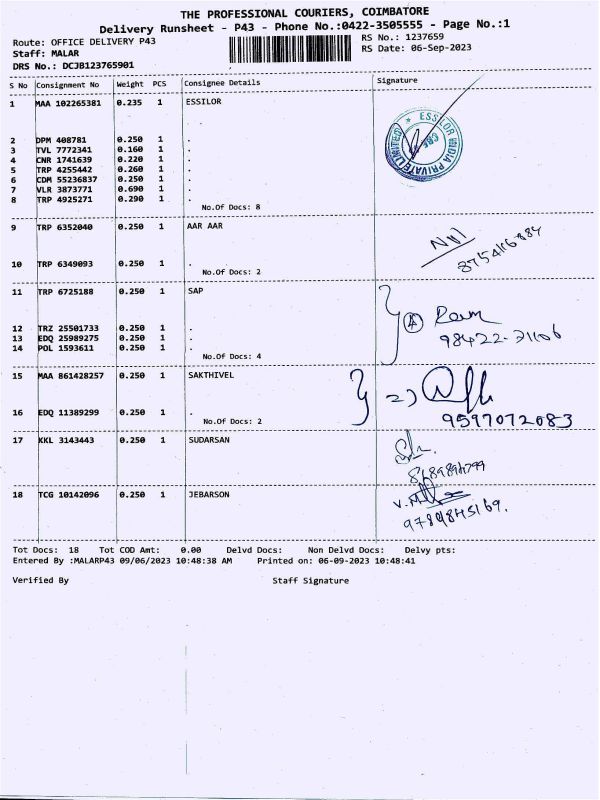 THE PROFESSIONAL COURIERS, COIMBATORE
Delivery Runsheet - P43 - Phone No.:0422-3505555 - Page No.:1
Route: OFFICE DELIVERY P43
RS No.: 1237659
Staff: MALAR
RS Date: 06-Sep-2023
DRS No.: DCJB123765901
S No Consignment No Weight PCS Consignee Details Signature
1 MAA 102265381 0.235 1 ESSILOR
ESSILOR INDIA PRIVATE LIMITED
CBE
2 DPM 408781 0.250 1 .
3 TVL 7772341 0.160 1 .
4 CNR 1741639 0.220 1 .
5 TRP 4255442 0.260 1 .
6 CDM 55236837 0.250 1 .
7 VLR 3873771 0.690 1 .
8 TRP 4925271 0.290 1 .
No.Of Docs: 8
9 TRP 6352040 0.250 1 AAR AAR
10 TRP 6349093 0.250 1 .
No.Of Docs: 2
11 TRP 6725188 0.250 1 SAP
4 Ram
98422-31106
12 TRZ 25501733 0.250 1 .
13 EDQ 25989275 0.250 1 .
14 POL 1593611 0.250 1 .
No.Of Docs: 4
15 MAA 861428257 0.250 1 SAKTHIVEL
2)
16 EDQ 11389299 0.250 1 .
No.Of Docs: 2
9597072083
17 KKL 3143443 0.250 1 SUDARSAN
18 TCG 10142096 0.250 1 JEBARSON
Tot Docs: 18 Tot COD Amt: 0.00 Delvd Docs: Non Delvd Docs: Delvy pts:
Entered By :MALARP43 09/06/2023 10:48:38 AM Printed on: 06-09-2023 10:48:41
Verified By Staff Signature